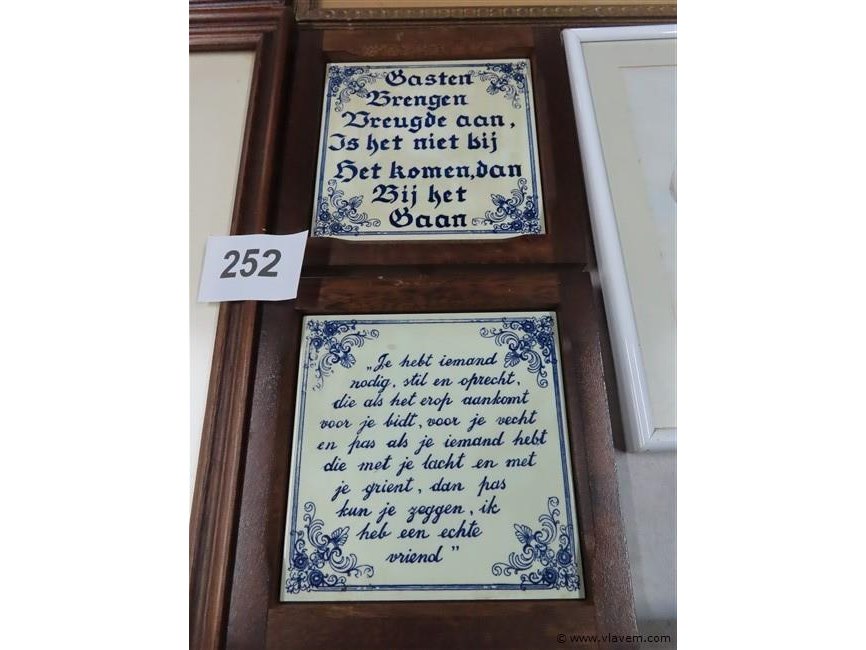 Gasten
Brengen
Vreugde aan,
Is het niet bij
Het komen, dan
Bij het
Gaan
252
„Je hebt iemand
nodig, stil en oprecht,
die als het erop aankomt
voor je bidt, voor je vecht
en pas als je iemand hebt
die met je lacht en met
je grient, dan pas
kun je zeggen, ik
heb een echte
vriend”
© www.vlavem.com